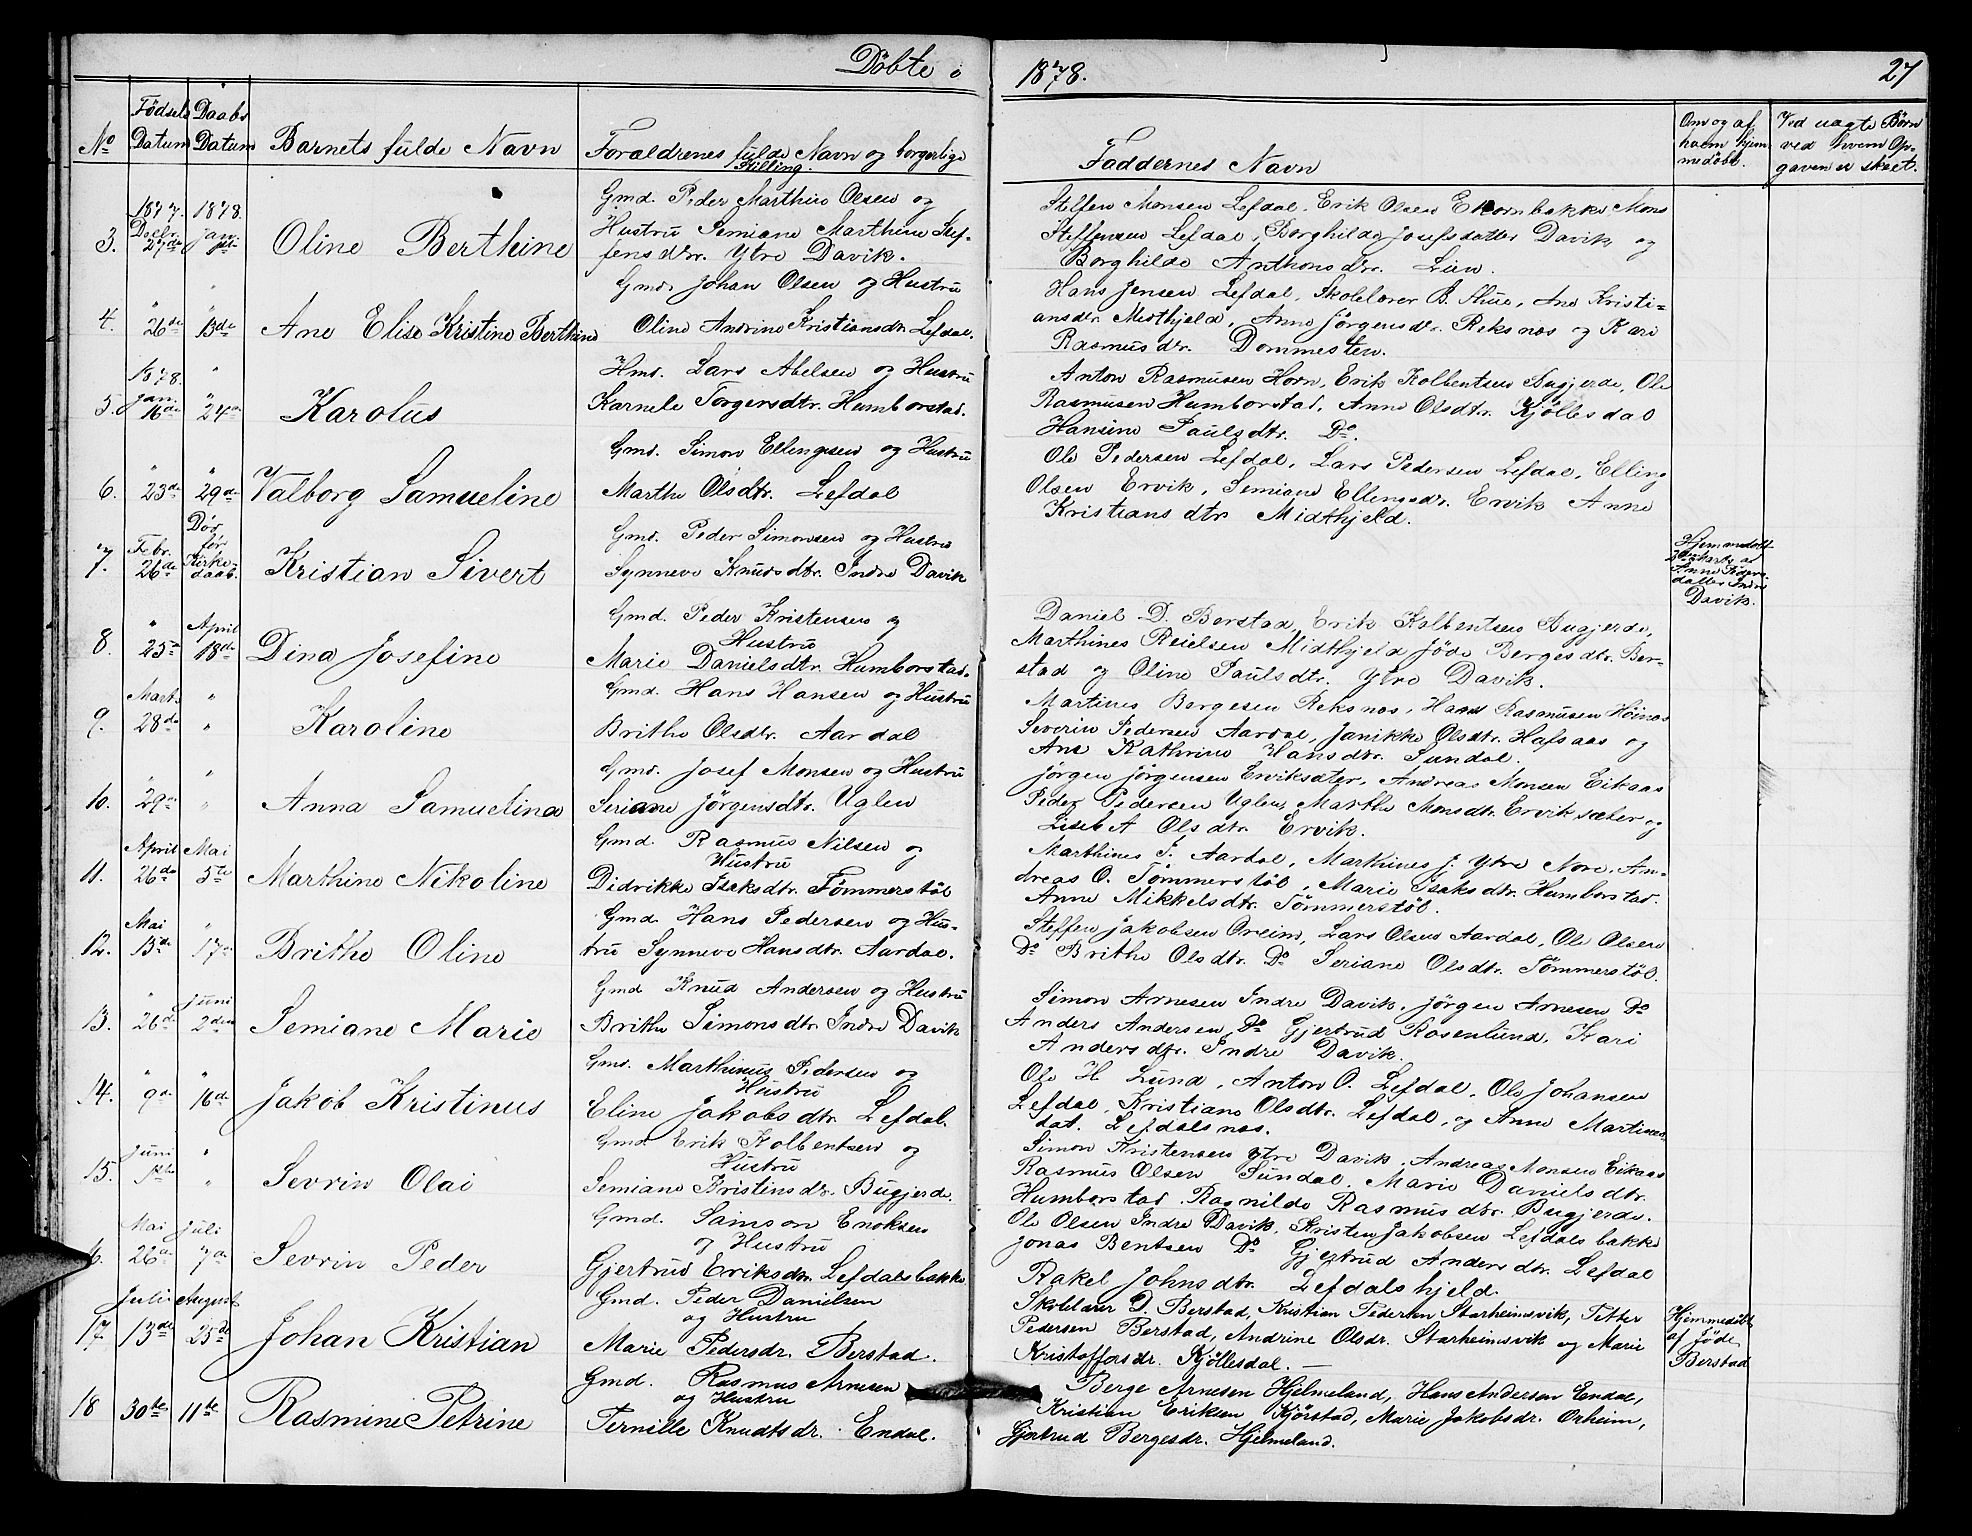 Döbte i
1878.
27
No
Födsels Datum
Daabs Datum
Barnets fulde Navn
Forældrenes fulde Navn og borgerlige Stilling.
Faddernes Navn
Om og af hvem hjemmedöbt.
Ved uægte Börn ved hvem Opgaven er skeet.
3.
1877. Decbr. 27de
1878. Jan.
Oline Berthine
Gmd. Peder Marthin Olsen og
Hustru Semiane Marthine Stef-
fensdtr. Ytre Davik.
Steffen Monsen Lefdal, Erik Olsen Ekornbakke Mons
Steffensen Lefdal, Borghilde Josefsdatter Davik og
Borghilde Anthonsdtr. Lien.
4.
" 26de
" 13de
Ane Elise Kristine Berthine
Gmd. Johan Olsen og Hustru
Oline Andrine Kristiansdtr. Lefdal.
Hans Jensen Lefdal, Skolelærer B. Skue, Ane Kristi-
ansdtr. Midthjeld, Anne Jörgensdtr. Reksnæs og Kari
Rasmusdtr. Dommesten.
5.
1878. Jan. 16de
" 24de
Karolus
Hmd. Lars Abelsen og Hustru
Karnele Torgersdtr. Humborstad.
Anton Rasmusen Horn, Erik Kolbentsen Bugjerde, Ole
Rasmusen Humborstad, Anne Olsdtr. Kjöllesdal
Hansine Paulsdtr. Do.
6.
" 23de
" 29de
Valborg Samueline
Gmd. Simon Ellingsen og Hustru
Marthe Olsdtr. Lefdal
Ole Pedersen Lefdal, Lars Pedersen Lefdal, Elling
Olsen Ervik, Semiane Ellingsdtr. Ervik Anne
Kristiansdtr Midthjeld.
7.
Febr. 26de
Död för Kirkedaab.
Kristian Sivert
Gmd. Peder Simonsen og Hustru
Synneve Knudsdtr. Indre Davik
Hjemmedöbt af Anne datter Indre Davik.
8.
" 25de
April 18de
Dina Josefine
Gmd. Peder Kristensen og
Hustru
Marie Danielsdtr. Humborstad.
Daniel D. Berstad, Erik Kolbentsen Bugjerde,
Marthines Reielsen Midthjeld Jöde Bergesdtr. Ber-
stad og Oline Paulsdtr. Ytre Davik.
9.
Marts 28de
" "
Karoline
Gmd. Hans Hansen og Hustru
Brithe Olsdtr. Aardal
Martines Bergesen Reksnæs, Hans Rasmusen Höinæs
Severin Pedersen Aardal, Janikke Olsdtr. Hafsaas og
Ane Kathrine Hansdtr. Sundal.
10.
" 29de
" "
Anna Samuelina
Gmd. Josef Monsen og Hustru
Seriane Jörgensdtr. Uglen
Jörgen Jörgensen Erviksæter, Andreas Monsen Eikaas
Peder Pedersen Uglen, Marthe Monsdtr. Erviksæter og
Lisebet Olsdtr. Ervik.
11.
April 26de
Mai 5te
Marthine Nikoline
Gmd. Rasmus Nilsen og
Hustru
Didrikke Isaksdtr. Tömmerstöl
Marthines J. Aardal, Marthines J. Ytre Nore, An-
dreas O. Tömmerstöl, Marie Isaksdtr. Humborstad.
Anne Mikkelsdtr. Tömmerstöl.
12.
Mai 13de
" 17de
Brithe Oline
Gmd. Hans Pedersen og Hus-
tru Synneve Hansdtr. Aardal.
Steffen Jakobsen Oreim, Lars Olsen Aardal, Ole Olsen
Do Brithe Olsdtr. Do Seriane Olsdtr. Tömmerstöl.
13.
" 26de
Juni 2den
Semiane Marie
Gmd Knud Andersen og Hustru
Brithe Simonsdtr. Indre Davik
Simon Arnesen Indre Davik, Jörgen Arnesen Do
Anders Andersen, Do Gjertrud Rosenlund, Kari
Andersdtr. Indre Davik.
14.
" 9de
" 16de
Jakob Kristinus
Gmd. Marthinus Pedersen og
Hustru
Eline Jakobsdtr. Lefdal.
Ole H Lund, Anton O. Lefdal, Ole Johansen
Lefdal, Kristiane Olsdtr. Lefdal, og Anne Martines-
dat. Lefdalsnæs.
15.
Juni 1ste
" "
Sevrin Olai
Gmd. Erik Kolbentsen og
Hustru
Semiane Kristinsdtr. Bugjerde.
Simon Kristensen ytre Davik, Andreas Monsen Eikaas
Rasmus Olsen Sundal, Marie Danielsdtr.
Humborstad, Ragnilde Rasmusdtr. Bugjerde.
16.
Mai 22de
Juli 7de
Sevrin Peder
Gmd. Samson Enoksen
og Hustru
Gjertrud Eriksdtr. Lefdalsbakke
Ole Olsen Indre Davik, Kristen Jakobsen Lefdalsbakke
Jonas Bentsen Do Gjertrud Andersdtr. Lefdal
Rakel Johnsdtr. Lefdalshjeld.
17.
Juli 13de
August 25de
Johan Kristian
Gmd. Peder Danielsen
og Hustru
Marie Pedersdr. Berstad.
Skolelærer D. Berstad, Kristian Pedersen Starheimsvik, Petter
Pedersen Berstad, Andrine Olsdr. Starheimsvik og Marie
Kristoffersdr. Kjöllesdal. —
Hjemmedöbt af Jöde Berstad
18
30te
11te
Rasmine Petrine
Gmd. Rasmus Arnesen
og Hustru
Pernille Knudtsdr. Endal.
Berge Arnesen Hjelmeland, Hans Andersen Endal,
Kristian Eriksen Kjörstad, Marie Jakobsdr. Orheim,
Gjertrud Bergesdr. Hjelmeland.